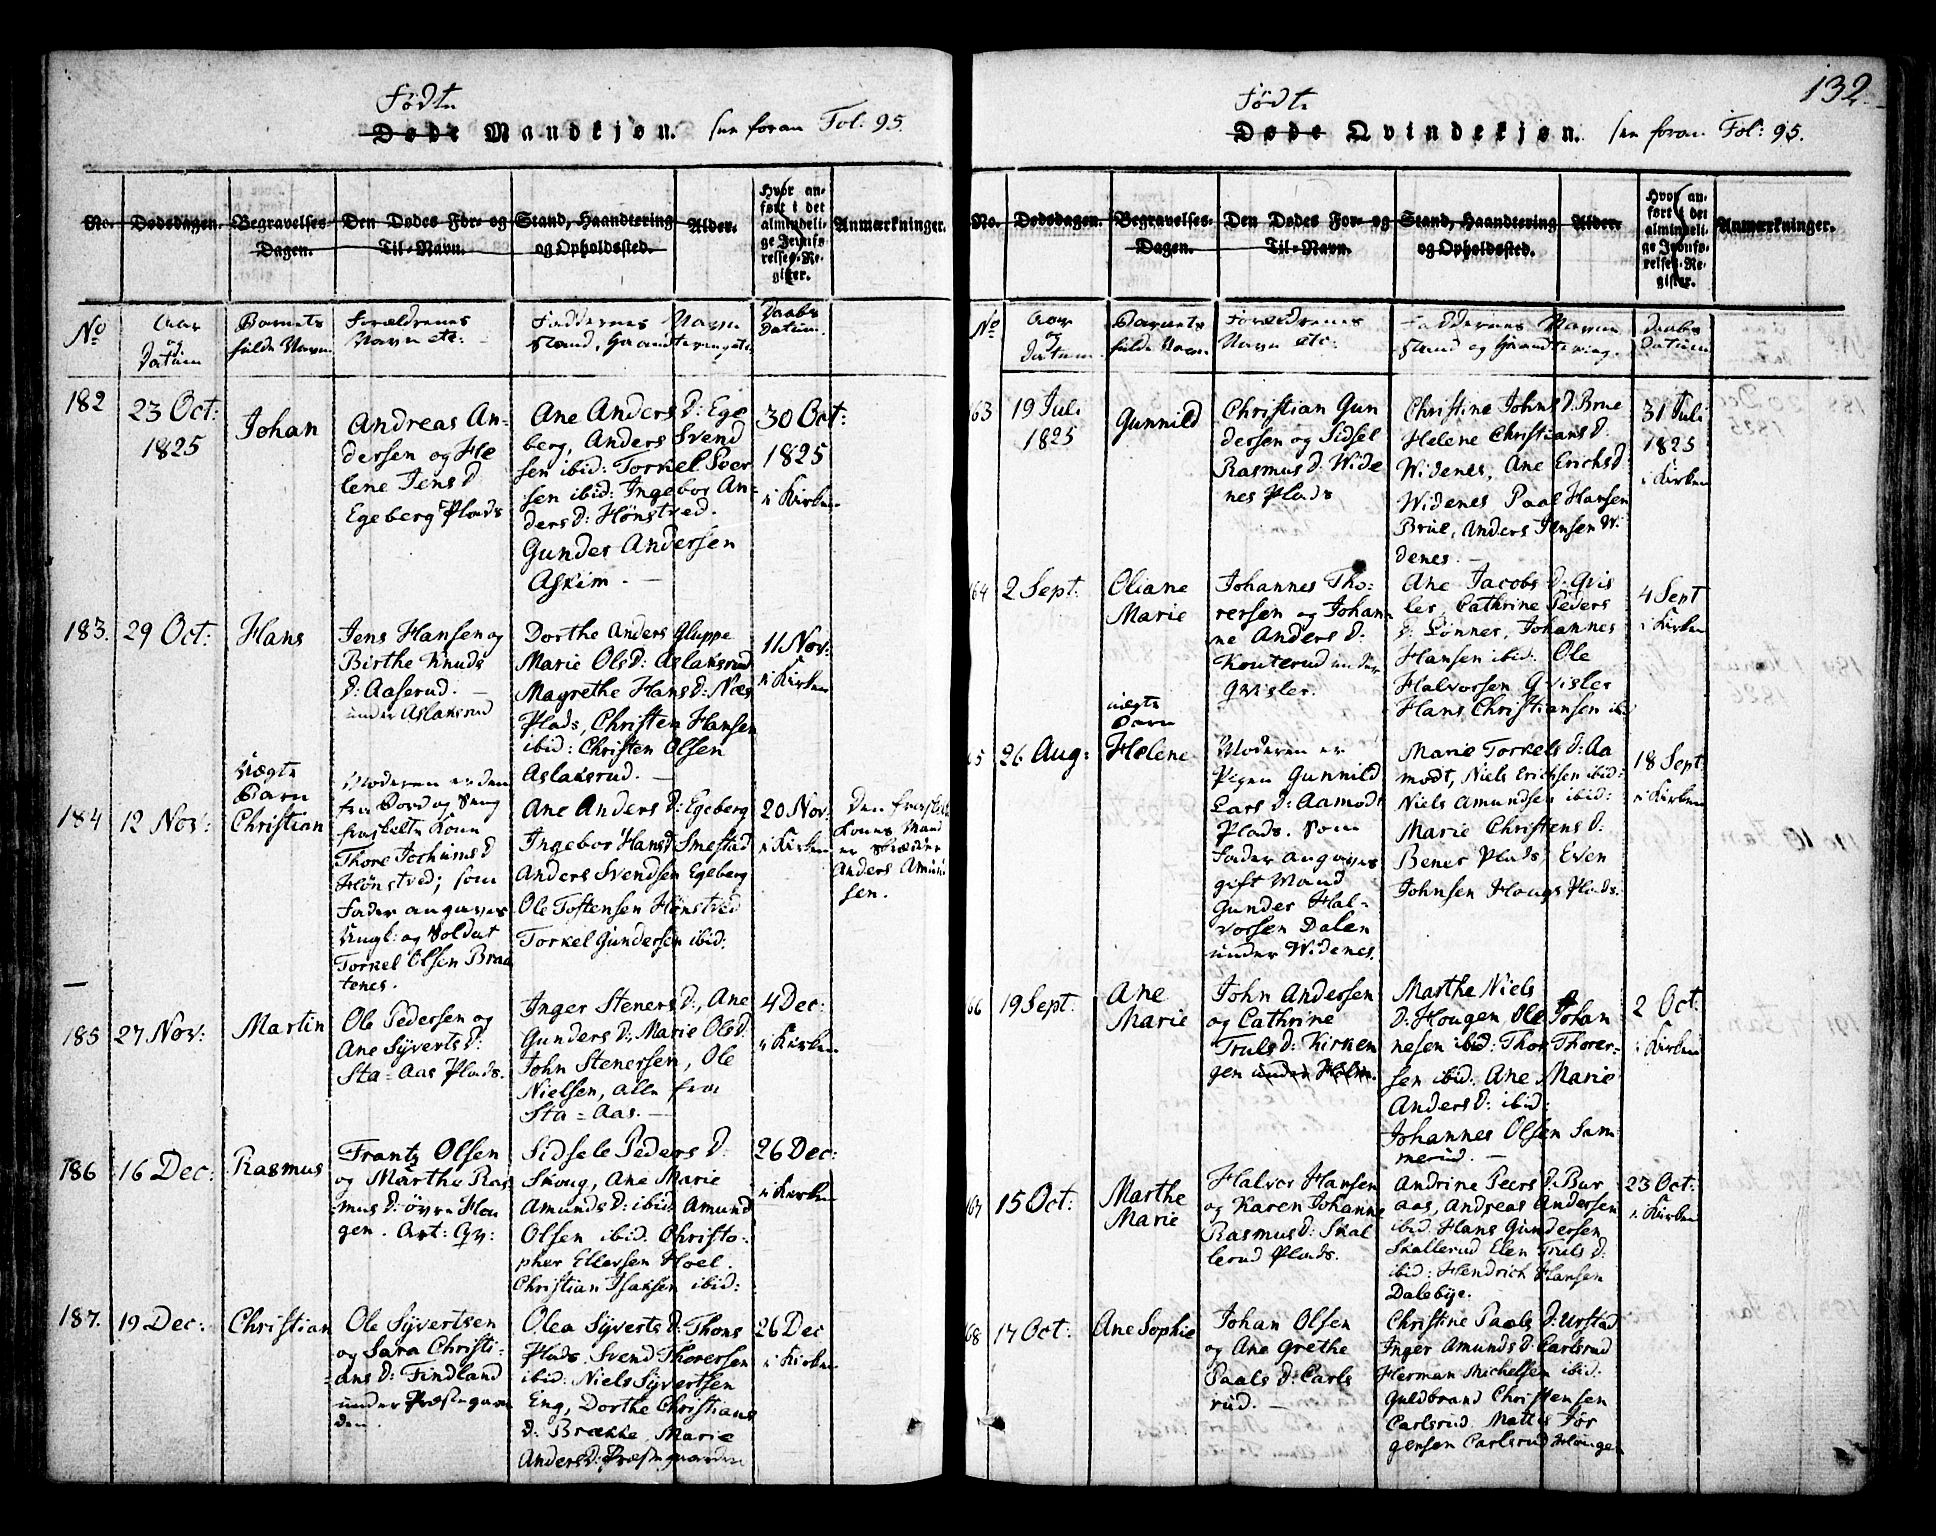 132.
Födte
Døde Mandkjøn. see foran Fol: 95.
No. Dødsdagen. Begravelses-Dagen. Den Dødes For- og Til-Navn. Stand, Haandtering og Opholdssted. Alder. Hvor anført i det almindelige Jevnførelses-Register. Anmærkninger.
No
Aar og Datum
Barnets fulde Navn
Forældrenes Navn etc:
Faddernes Navn Stand, Haandtering etc:
Daabs Datum.
182
23 Oct:
1825
Johan
Andreas An-
dersen og He
lene Jens D
Egeberg Plads
Ane Anders D: Ege
berg, Anders Svend
sen ibid: Torkel Peer
sen ibid: Ingebor An-
ders D: Hönstved.
Gunder Andersen
Askim. —
30 Oct:
1825
i Kirken
183.
29 Oct:
Hans
Jens Hansen og
Birthe Knuds
D: Aaserud. —
under Aslaksrud
Dorthe Anders Gluppe
Marie Ols D: Aslaksrud
Magrethe Hans D: Næs
Plads, Christen Hansen
ibid: Christen Olsen
Aslaksrud. —
11 Nov:
i Kirken
184
12 Nov:
Uægte
Barn
Christian
Moderen er den
fra Bord og Seng
fraskilte Kone
Thore Jochums D
Hönstved; som
Fader angaves
Ungk: og Soldat
Torkel Olsen Braa
tenes.
Ane Anders D: Egeberg
Ingebor Hans D Smestad
Anders Svendsen Egeberg
Ole Tostensen Hönstved
Torkel Gundersen ibid:
20 Nov:
i Kirken
Den fraskilte
Kones Mand
er Skræder
Anders Amund
sen.
185
27 Nov:
Martin
Ole Pedersen og
Ane Syverts D:
Sta=Aas Plads.
Inger Steners D:, Ane
Gunders D: Marie Ols D:
John Stenersen, Ole
Nielsen, alle fra
Sta=Aas. —
4 Dec:
i Kirken
186
16 Dec:
Rasmus
Frantz Olsen
og Marthe Ras
mus D: övre Hou
gen. Art: Qv:
Sidsele Peders D:
Skoug, Ane Marie
Amunds D: ibid: Amund
Olsen ibid. Christo-
pher Ellersen Hoel.
Christian Isaksen ibid:
26 Dec:
i Kirken
187.
19 Dec:
Christian
Ole Syvertsen
og Sara Christi-
ans D: Findland
under Præstegaar
den.
Olea Syverts D: Thons
Plads. Svend Thorersen
ibid: Niels Syvertsen
Eng, Dorthe Christians
D: Brække. Marie
Anders D: Præstegaarden
26 Dec
i Kirken
Födte
Døde Qvindekjøn. see foran Fol: 95.
No. Dødsdagen. Begravelses-Dagen. Den Dødes For- og Til-Navn. Stand, Haandtering og Opholdssted. Alder. Hvor anført i det almindelige Jevnførelses-Register. Anmærkninger.
No
Aar og Datum.
Barnets fulde Navn
Forældrenes Navn etc:
Faddernes Navn Stand og Haandtering.
Daabs Datum
63
19 Juli
1825
Gunnild
Christian Gun
dersen og Sidsel
Rasmus D: Wide
nes Plads
Christine Johns D: Brue
Helene Christians D.
Widenes, Ane Erichs D:
Widenes Paal Hansen
Brue, Anders Jensen Wi
denes. —
31 Juli
1825
i Kirken
64
2 Sept:
Oliane
Marie
Johannes Tho-
rersen og Johan
ne Anders D:
Kouterud under
Gvisler.
Ane Jacobs D: Gvis
ler, Cathrine Peders
D: Lönner, Johannes
Hansen ibid: Ole
Halvorsen Gvisler
Hans Christiansen ibid
4 Sept
i Kirken
65
26 Aug:
uægte
Barn
Helene
Moderen er
Pigen Gunnild
Lars D: Aamodt
Plads. Som
Fader angaves
gift Mand
Gunder Hal-
vorsen Dalen
under Widenes.
Marie Torkels D: Aa
modt, Niels Erichsen ibid:
Niels Amundsen ibid:
Marie Christens D:
Bener Plads, Even
Johnsen Hougs Plads.
18 Sept:
i Kirken
66
19 Sept:
Ane
Marie
John Andersen
og Cathrine
Truls D: Kirken
gen under Holm.
Marthe Niels
D: Hougen Ole Johan
nesen ibid: Thor Thorer-
sen ibid. Ane Marie
Anders D: ibid:
Johannes Olsen Sam
merud. —
2 Oct:
i Kirken
67
15 Oct:
Marthe
Marie
Halvor Hansen
og Karen Johanne
Rasmus D: Skal
lerud Plads.
Andrine Peers D: Bur
aas, Andreas Andersen
ibid: Hans Gundersen
Skallerud Elen Truls D:
ibid: Hendrich Hansen
Dalebye.
23 Oct:
i Kirken
68
17 Oct:
Ane Sophie
Johan Olsen
og Ane Grethe
Paals D: Carls
rud. —
Christine Paals D: Urstad
Inger Amunds D: Carlsrud
Herman Michelsen ibid:
Guldbrand Christensen
Carlsrud. Mattis Jör
gensen Carlsrud Hougen